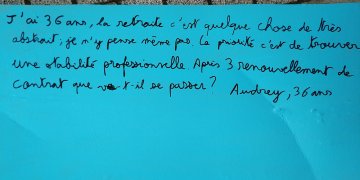 J'ai 36 ans, la retraite c'est quelque chose de très
abstrait, je n'y pense même pas. La priorité c'est de trouver
une stabilité professionnelle. Après 3 renouvellement de
contrat que va-t-il se passer? Audrey, 36 ans